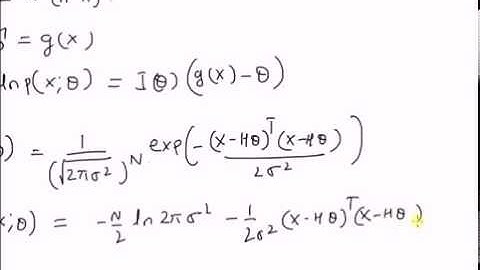 = g(x)
ln p(x;θ) = I(θ) (g(x) - θ)
) = 1/(√2πσ²)^N exp(-(x-Hθ)^T(x-Hθ)/2σ²)
x;θ) = -N/2 ln 2πσ² - 1/2σ² (x-Hθ)^T(x-Hθ)